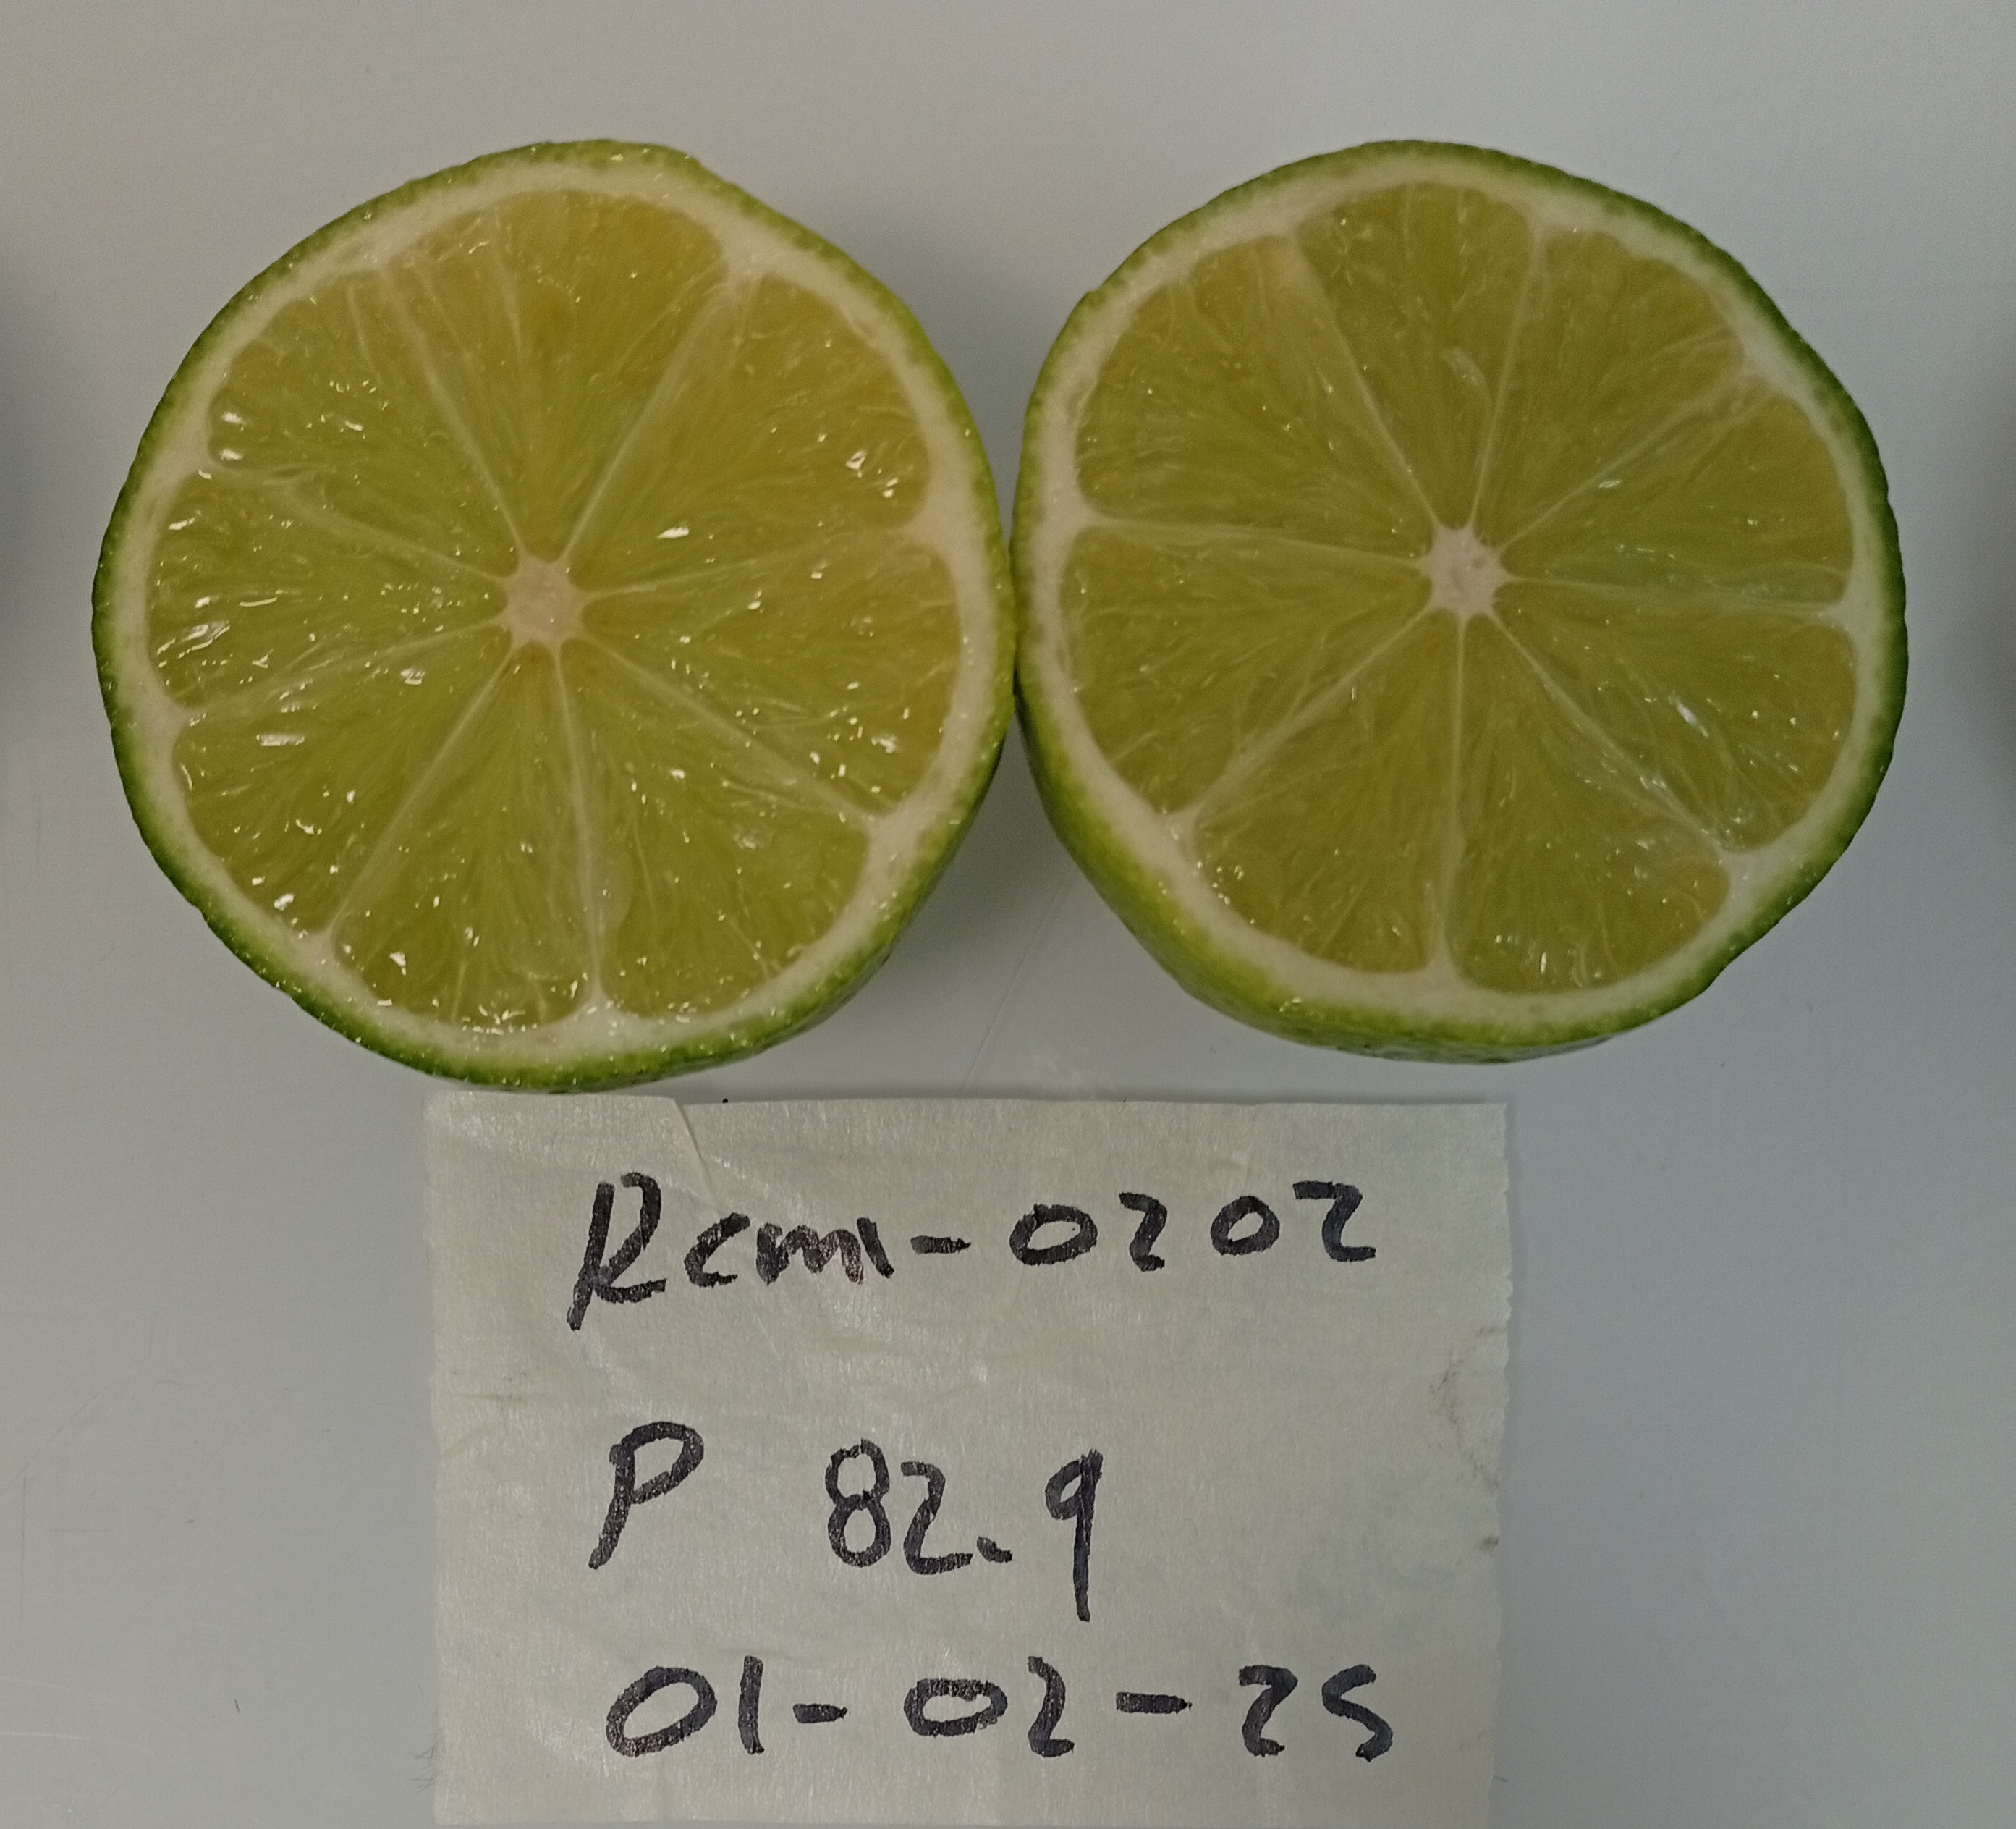 Rcm1-0202
P 82.9
01-02-25